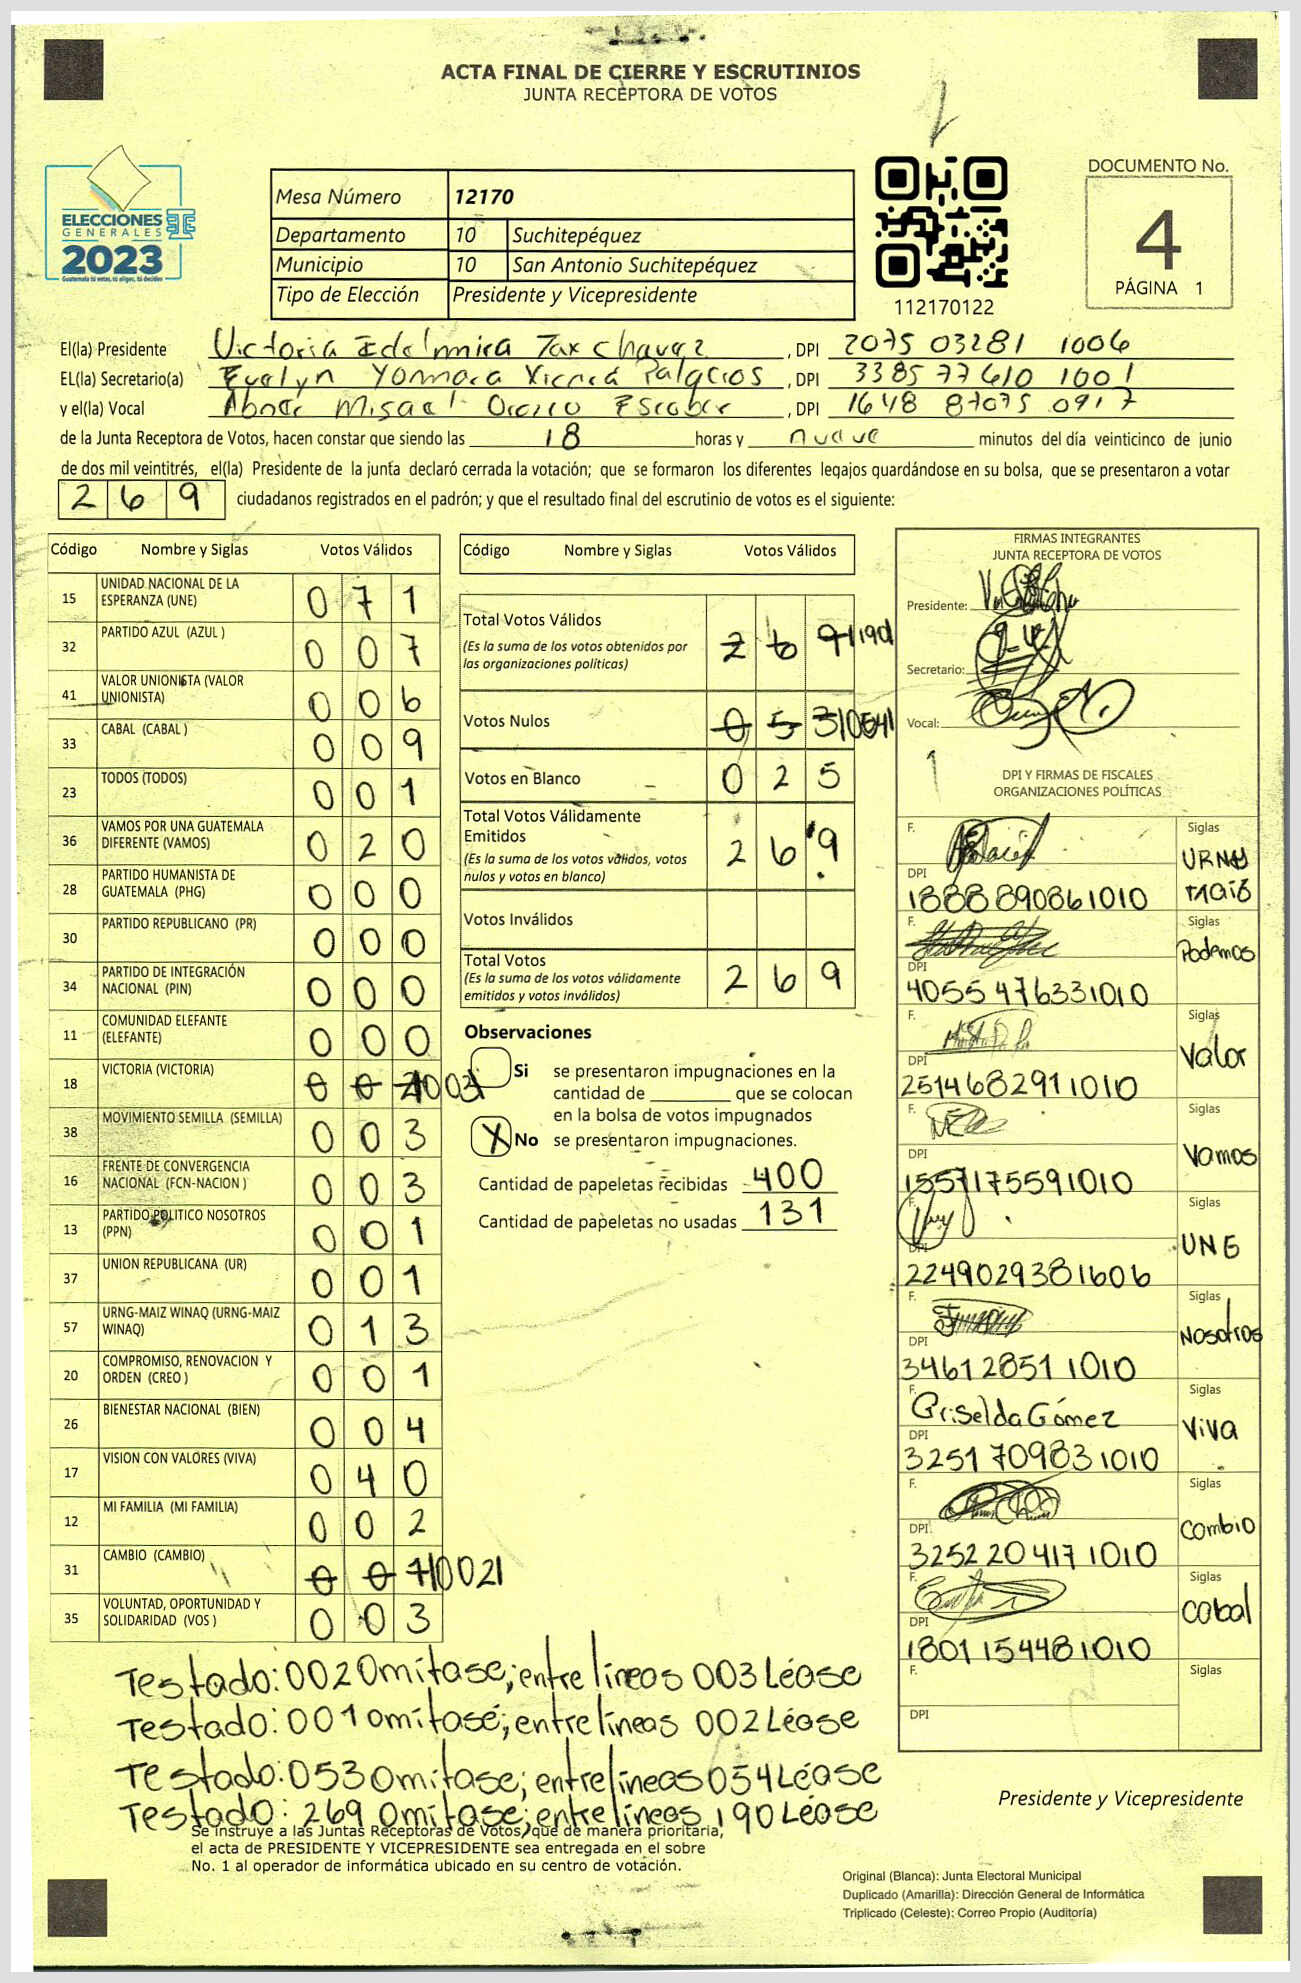 ACTA FINAL DE CIERRE Y ESCRUTINIOS
JUNTA RECEPTORA DE VOTOS
ELECCIONES
GENERALES
2023
Guatemala tú votas, tú eliges, tú decides
Mesa Número 12170
Departamento 10 Suchitepéquez
Municipio 10 San Antonio Suchitepéquez
Tipo de Elección Presidente y Vicepresidente
112170122
DOCUMENTO No.
4
PÁGINA 1
El(la) Presidente Victoria Edelmira Tax Chavez , DPI 2075 03281 1006
EL(la) Secretario(a) Evelyn Yommara Palacios , DPI 3385 77610 1001
y el(la) Vocal Abner Misael Orozco Escobar , DPI 1648 87075 0917
de la Junta Receptora de Votos, hacen constar que siendo las 18 horas y nueve minutos del día veinticinco de junio
de dos mil veintitrés, el(la) Presidente de la junta declaró cerrada la votación; que se formaron los diferentes legajos guardándose en su bolsa, que se presentaron a votar
269 ciudadanos registrados en el padrón; y que el resultado final del escrutinio de votos es el siguiente:
Código Nombre y Siglas Votos Válidos
15 UNIDAD NACIONAL DE LA ESPERANZA (UNE) 071
32 PARTIDO AZUL (AZUL ) 007
41 VALOR UNIONISTA (VALOR UNIONISTA) 006
33 CABAL (CABAL ) 009
23 TODOS (TODOS) 001
36 VAMOS POR UNA GUATEMALA DIFERENTE (VAMOS) 020
28 PARTIDO HUMANISTA DE GUATEMALA (PHG) 000
30 PARTIDO REPUBLICANO (PR) 000
34 PARTIDO DE INTEGRACIÓN NACIONAL (PIN) 000
11 COMUNIDAD ELEFANTE (ELEFANTE) 000
18 VICTORIA (VICTORIA) 002 |003|
38 MOVIMIENTO SEMILLA (SEMILLA) 003
16 FRENTE DE CONVERGENCIA NACIONAL (FCN-NACION ) 003
13 PARTIDO POLITICO NOSOTROS (PPN) 001
37 UNION REPUBLICANA (UR) 001
57 URNG-MAIZ WINAQ (URNG-MAIZ WINAQ) 013
20 COMPROMISO, RENOVACION Y ORDEN (CREO ) 001
26 BIENESTAR NACIONAL (BIEN) 004
17 VISION CON VALORES (VIVA) 040
12 MI FAMILIA (MI FAMILIA) 002
31 CAMBIO (CAMBIO) 001 |002|
35 VOLUNTAD, OPORTUNIDAD Y SOLIDARIDAD (VOS ) 003
Código Nombre y Siglas Votos Válidos
Total Votos Válidos 269 |190|
(Es la suma de los votos obtenidos por
las organizaciones políticas)
Votos Nulos 053 |054|
Votos en Blanco 025
Total Votos Válidamente
Emitidos 269
(Es la suma de los votos válidos, votos
nulos y votos en blanco)
Votos Inválidos
Total Votos 269
(Es la suma de los votos válidamente
emitidos y votos inválidos)
Observaciones
Si se presentaron impugnaciones en la
cantidad de ________ que se colocan
en la bolsa de votos impugnados
X No se presentaron impugnaciones.
Cantidad de papeletas recibidas 400
Cantidad de papeletas no usadas 131
FIRMAS INTEGRANTES
JUNTA RECEPTORA DE VOTOS
Presidente:
Secretario:
Vocal:
DPI Y FIRMAS DE FISCALES
ORGANIZACIONES POLÍTICAS
F. Siglas URNG Maíz
DPI 1888890861010
F. Siglas Podemos
DPI 4055476331010
F. Siglas Valor
DPI 2514682911010
F. Siglas Vamos
DPI 1557175591010
F. Siglas UNE
DPI 2249029381606
F. Siglas Nosotros
DPI 346128511010
F. Griselda Gómez Siglas Viva
DPI 3251709831010
F. Siglas Cambio
DPI 3252204171010
F. Siglas Cabal
DPI 1801154481010
F. Siglas
DPI
Testado: 002 Omítase; entre líneas 003 Léase
Testado: 001 omítase; entre líneas 002 Léase
Testado: 053 Omítase; entre líneas 054 Léase
Testado: 269 Omítase; entre líneas 190 Léase
Se instruye a las Juntas Receptoras de Votos, que de manera prioritaria,
el acta de PRESIDENTE Y VICEPRESIDENTE sea entregada en el sobre
No. 1 al operador de informática ubicado en su centro de votación.
Presidente y Vicepresidente
Original (Blanca): Junta Electoral Municipal
Duplicado (Amarilla): Dirección General de Informática
Triplicado (Celeste): Correo Propio (Auditoría)